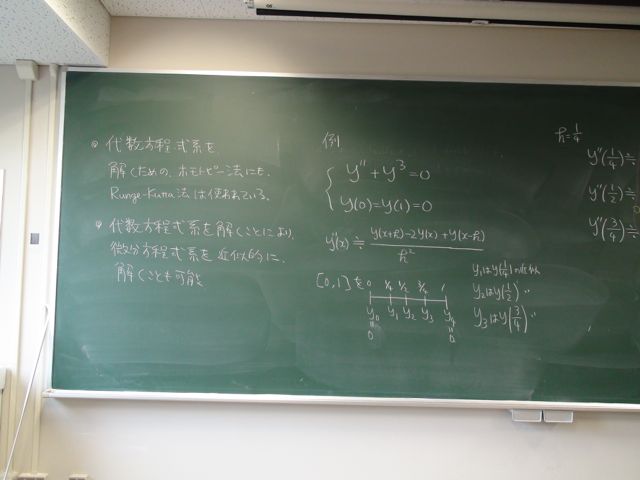 ◎ 代数方程式系を
解くための、ホモトピー法にも、
Runge-Kutta法は使われている。
◎ 代数方程式系を解くことにより、
微分方程式系を近似的に、
解くことも可能
例
y''+y³=0
y(0)=y(1)=0
y''(x)≒ y(x+h)-2y(x)+y(x-h)
h²
[0,1]を 0 1/4 1/2 3/4 1
y₀ y₁ y₂ y₃ y₄
" "
0 0
y₁はy(1/4)の近似
y₂はy(1/2) 〃
y₃はy(3/4) 〃
h=1/4
y''(1/4)≒
y''(1/2)≒
y''(3/4)≒